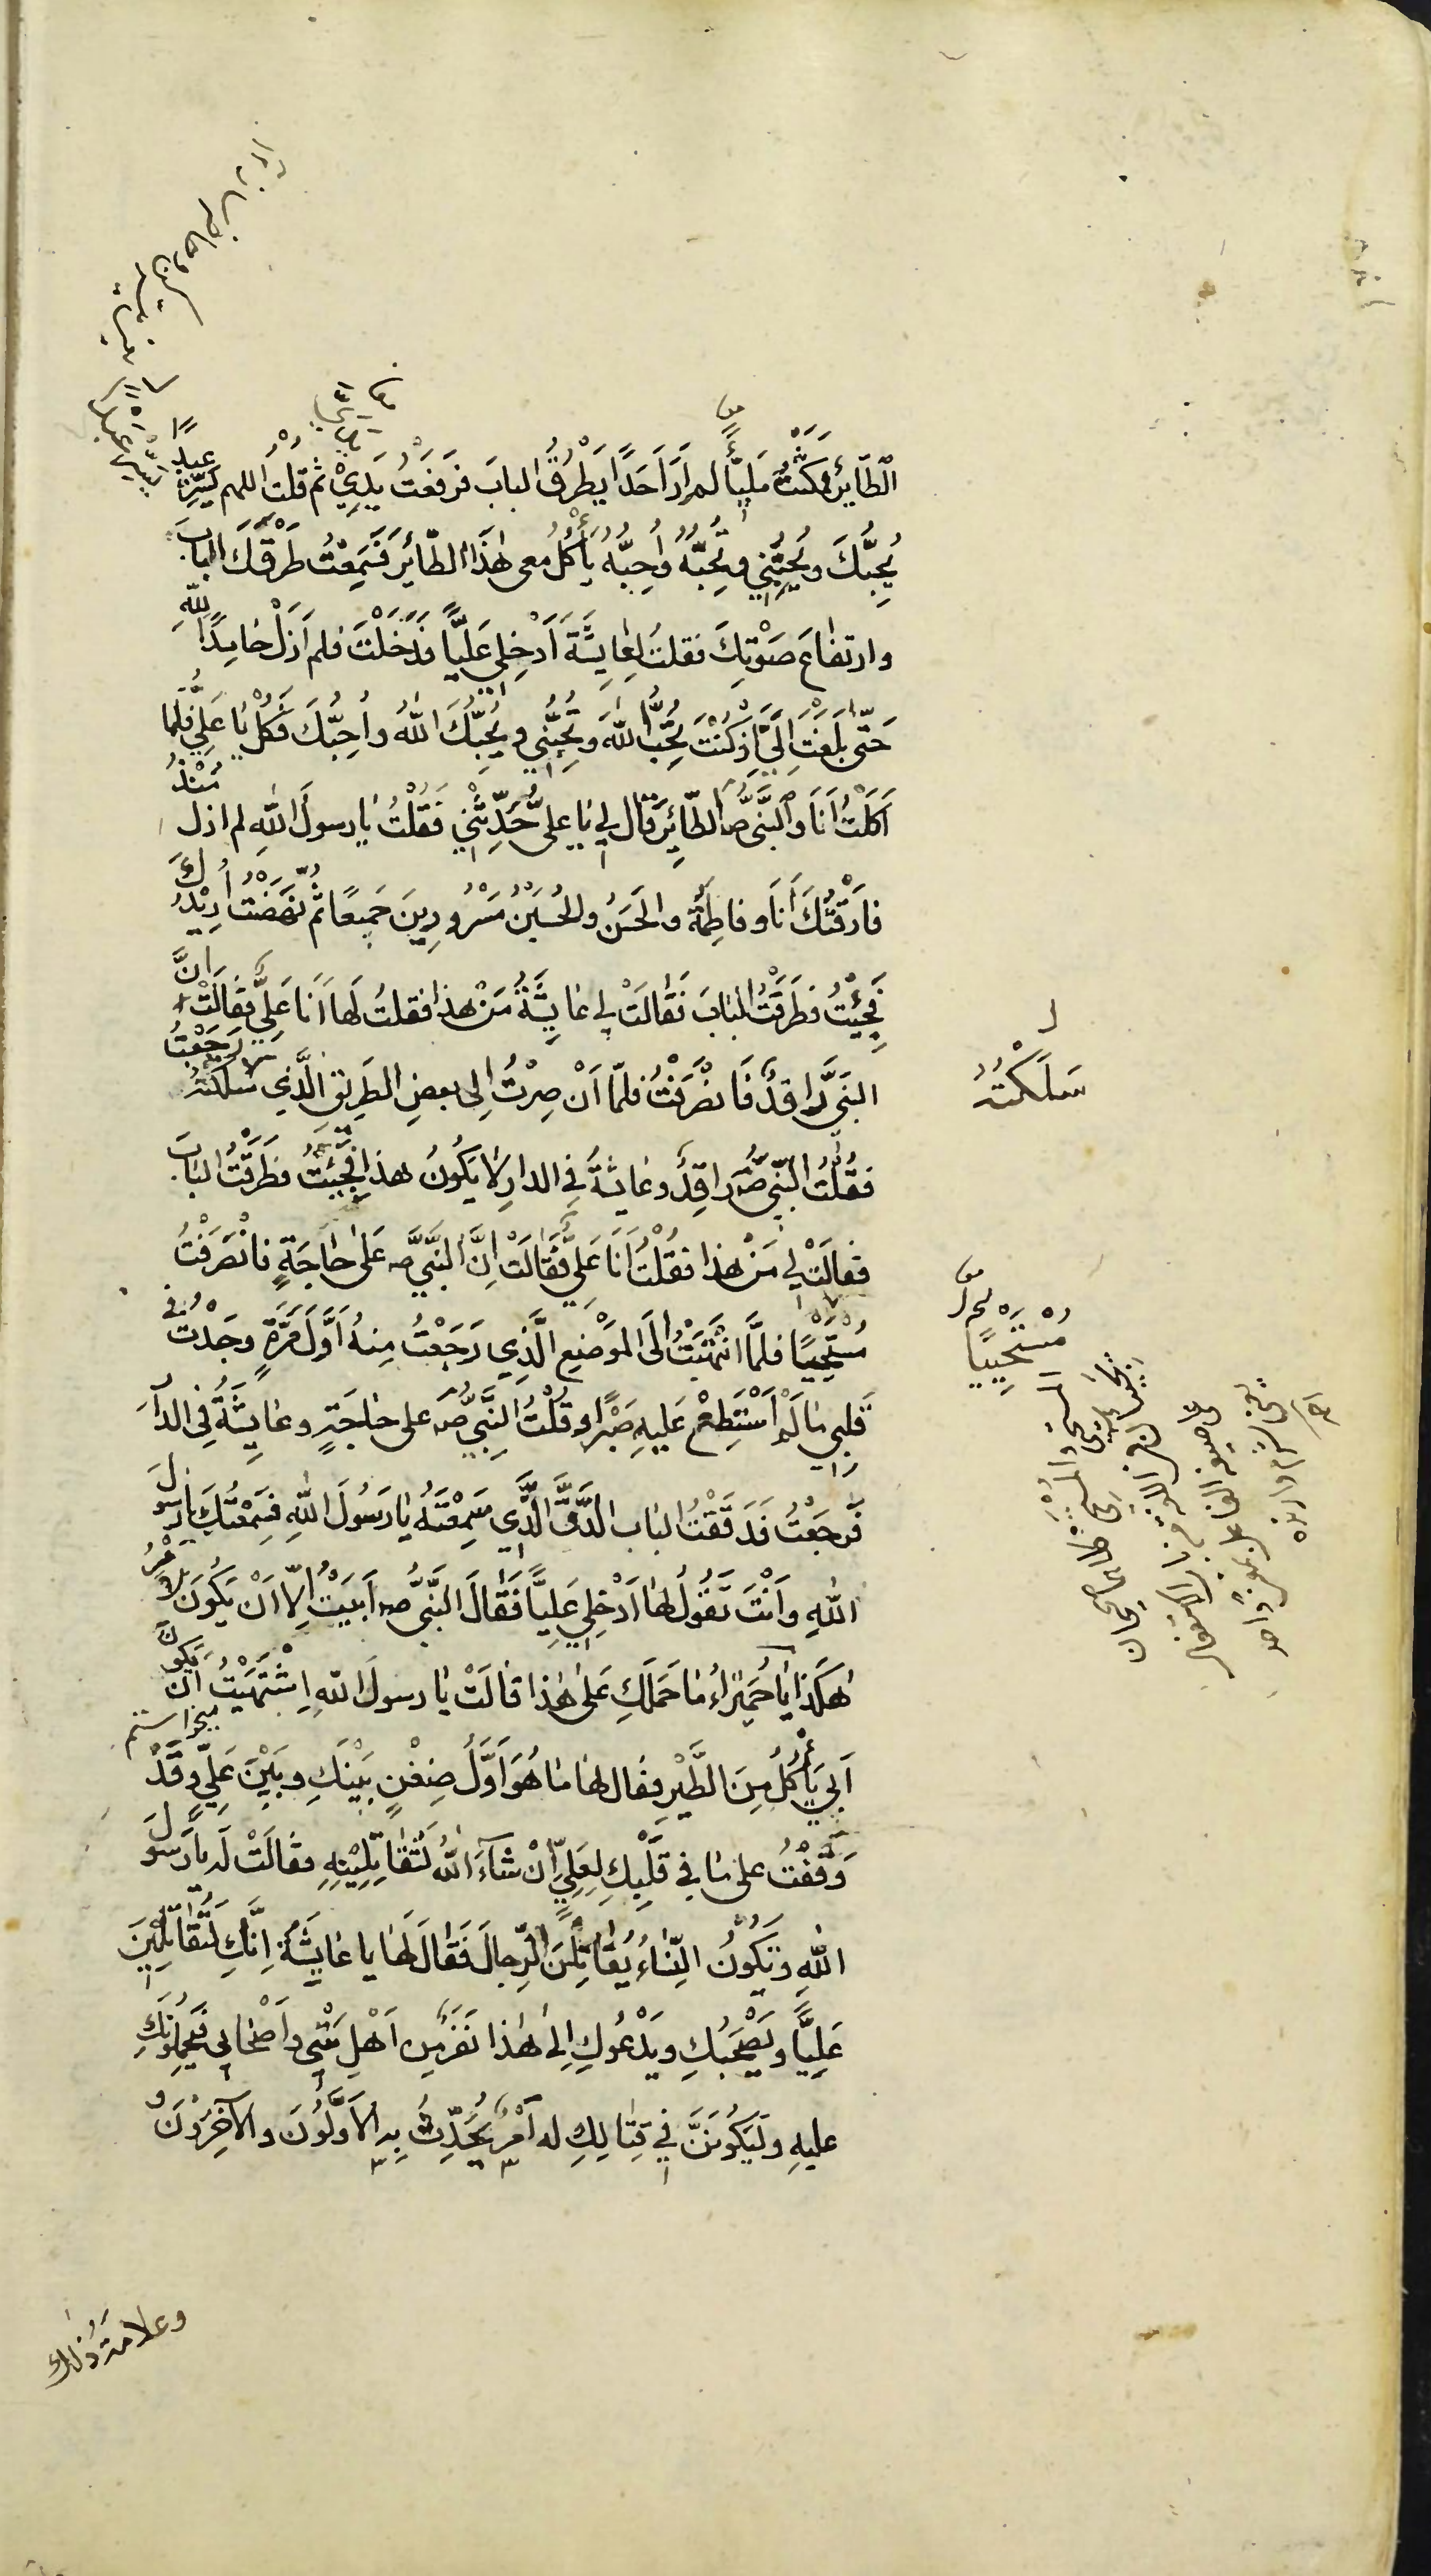 الطّائِرَ فمَكَثْتُ مَلِيّاً لم اَرَ اَحَدًا يَطْرُقُ البابَ فرَفَعْتُ يَدِيْ ثم قُلْتُ اللهم يَسِّرْ عبدًا
يُحِبُّكَ ويُحِبُّنِي وتُحِبُّهُ واُحِبُّهُ يَأْكُلُ معى هٰذَا الطّائِرَ فَسَمِعْتُ طَرْقَكَ البابَ
وارتفاعَ صَوْتِكَ فقلتُ لِعٰايِشَةَ اَدْخِلِي عَلِيًّا فَدَخَلْتَ فلم اَزَلْ حٰامِدًا للّٰهِ
حَتّى بَلَغْتَ اِلَيَّ اِذْ كُنْتَ تُحِبُّ اللّٰهَ وتُحِبُّنِي ويُحِبُّكَ اللّٰهُ واُحِبُّكَ فَكُلْ يٰا عَلِيُّ فلمّا
اَكَلْتُ اَنَا وَالنَّبِيُّ صه الطّائِرَ قال لِي يٰا علىُّ حَدِّثْنِي فَقُلْتُ يٰا رسولَ اللّٰهِ لم ازل مُنْذُ
فارَقْتُكَ اَنَا وفاطِمَةُ والحَسَنُ والحُسَيْنُ مَسْرُورِينَ جَمِيعًا ثُمَّ نَهَضْتُ اُرِيْدُكَ
فَجِئْتُ فطَرَقْتُ البٰابَ فَقٰالَتْ لِي عٰايِشَةُ مَنْ هٰذٰا فقلتُ لَهٰا اَنَا عَلِيٌّ فَقٰالَتْ اِنَّ
النَبِيَّ رٰاقِدٌ فَانصَرَفْتُ فلمّا اَنْ صِرْتُ اِلى بعضِ الطَرِيقِ الَّذِي سَلَكْتُهُ رَجَعْتُ
سَلَكْتُهُ
فقُلْتُ النَّبِيُّ صه رٰاقِدٌ وعٰايشةُ فِي الدارِ لايَكُونُ هذٰا فَجِئْتُ فطَرَقْتُ البٰابَ
فقالَتْ لِي مَنْ هٰذٰا فقُلْتُ اَنَا عَلِيٌّ فَقٰالَتْ اِنَّ النَّبِيَّ صه عَلىٰ حٰاجَةٍ فانْصَرَفْتُ
مُسْتَحْيِيًا فلمَّا انْتَهَيْتُ اِلَى المَوْضِعِ الَّذِي رَجَعْتُ مِنهُ اَوَّلَ مَرَّةٍ وجَدْتُ فِي
مُسْتَحْيِيًا
قَلبِي مٰا لَمْ اَسْتَطِعْ عَلَيهِ صَبْرًا وقُلْتُ النَّبِيُّ صه على حٰاجَةٍ وعٰايِشَةُ فِي الدّارِ
فَرجَعْتُ فَدَقَقْتُ البٰاب الدَّقَّ الَّذِي سَمِعْتَهُ يٰا رَسُولَ اللّٰهِ فسَمِعْتُكَ يٰا رسولَ
اللّٰهِ وَاَنْتَ تَقُولُ لهٰا اَدْخِلِي عَلِيًّا فَقٰالَ النَّبِيُّ صه اَبَيْتِ اِلاّ اَنْ يَكُونَ الاَمْرُ
هٰكَذٰا يٰا حُمَيْرٰاءُ مٰا حَمَلَكِ عَلىٰ هٰذٰا قٰالَتْ يٰا رسولَ اللّٰهِ اِشْتَهَيْتُ اَنْ يَكُونَ
ميخواستم
اَبِي يَأْكُلُ مِنَ الطَّيْرِ فقال لهٰا مٰا هُوَ اَوَّلُ ضِغْنٍ بَيْنَكِ وبَيْنَ عَلِيٍّ وقَدْ
وَقَفْتُ على مٰا فِي قَلْبِكِ لِعَلِيٍّ اِنْ شٰآءَ اللّٰهُ لَتُقٰاتِلِيْنَهِ فقٰالَتْ لَه يٰا رَسُولَ
اللّٰهِ وتَكُونُ النِّسٰاءُ يُقٰاتِلْنَ الرِّجالَ فَقٰالَ لَهٰا يا عٰايِشَةُ اِنَّكِ لَتُقٰاتِلِيْنَ
عَلِيًّا ويَصْحَبُكِ ويَدْعُوكِ اِلىٰ هٰذٰا نَفَرٌ مِن اَهْلِ بَيْتِي واَصْحٰابِي فيَحْمِلُونَكِ
عليهِ ولَيَكُونَنَّ فِي قِتٰالِكِ له اَمْرٌ يُحَدِّثُ بِهِ الاَوَّلُونَ والآخِرُونَ و
وعلامة ذلك